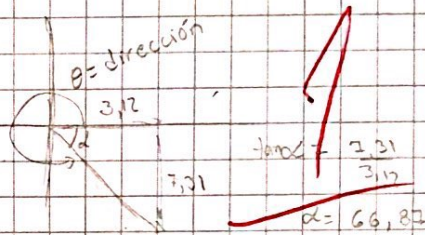 θ = dirección
3,12
α
7,31
tan α = 7,31 / 3,12
α = 66,87